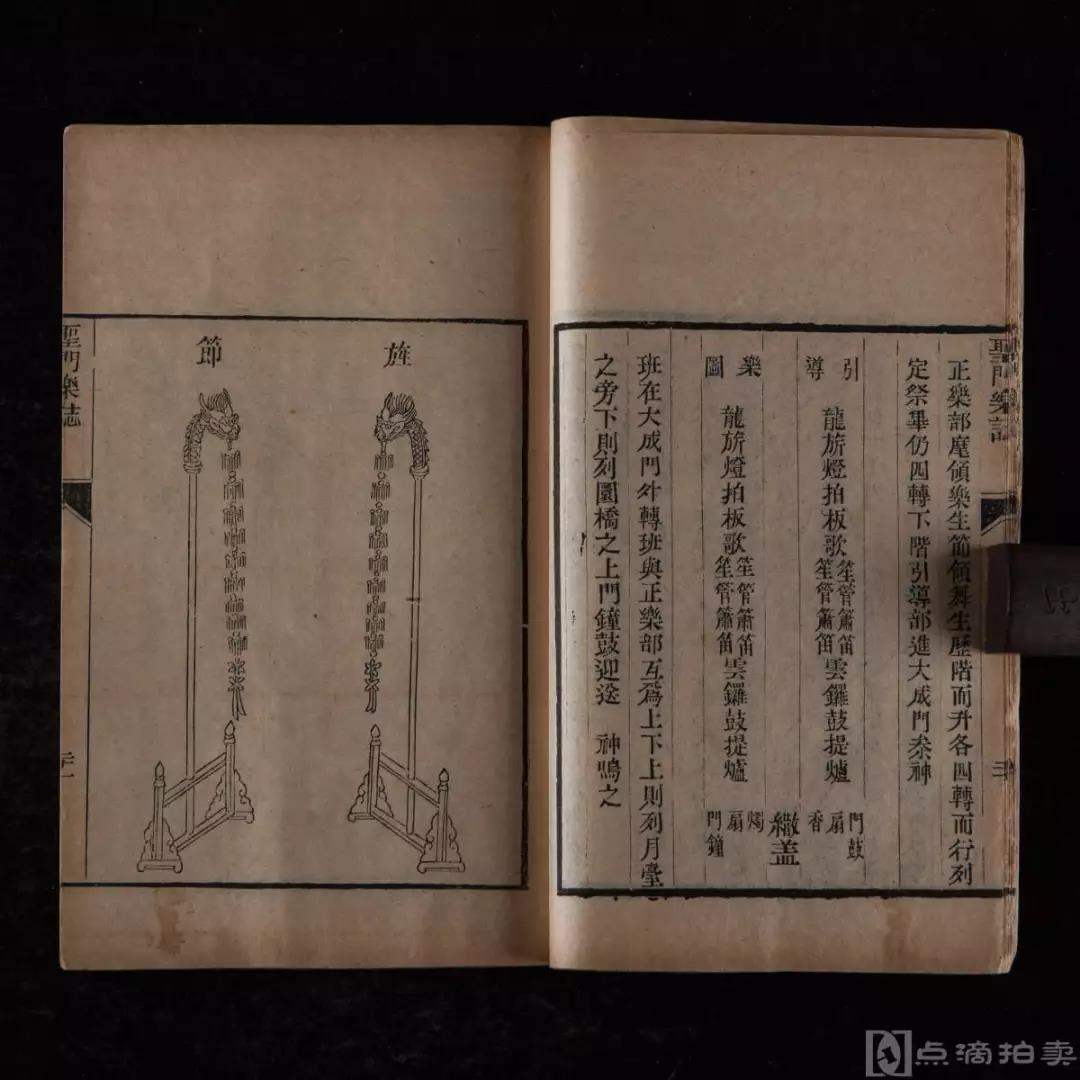 聖門樂誌
正樂部麾領樂生節領舞生歷階而升各四轉而行列
定祭畢仍四轉下階引導部進大成門叅神
引導
龍旂燈拍板歌笙管簫笛笙管簫笛雲鑼鼓提爐
門鼓
扇香
繖盖
樂圖
龍旂燈拍板歌笙管簫笛笙管簫笛雲鑼鼓提爐
燭扇
門鐘
班在大成門外轉班與正樂部互爲上下上則列月臺
之旁下則列圜橋之上門鐘鼓迎送 神鳴之
旌
節
聖門樂誌
点滴拍卖